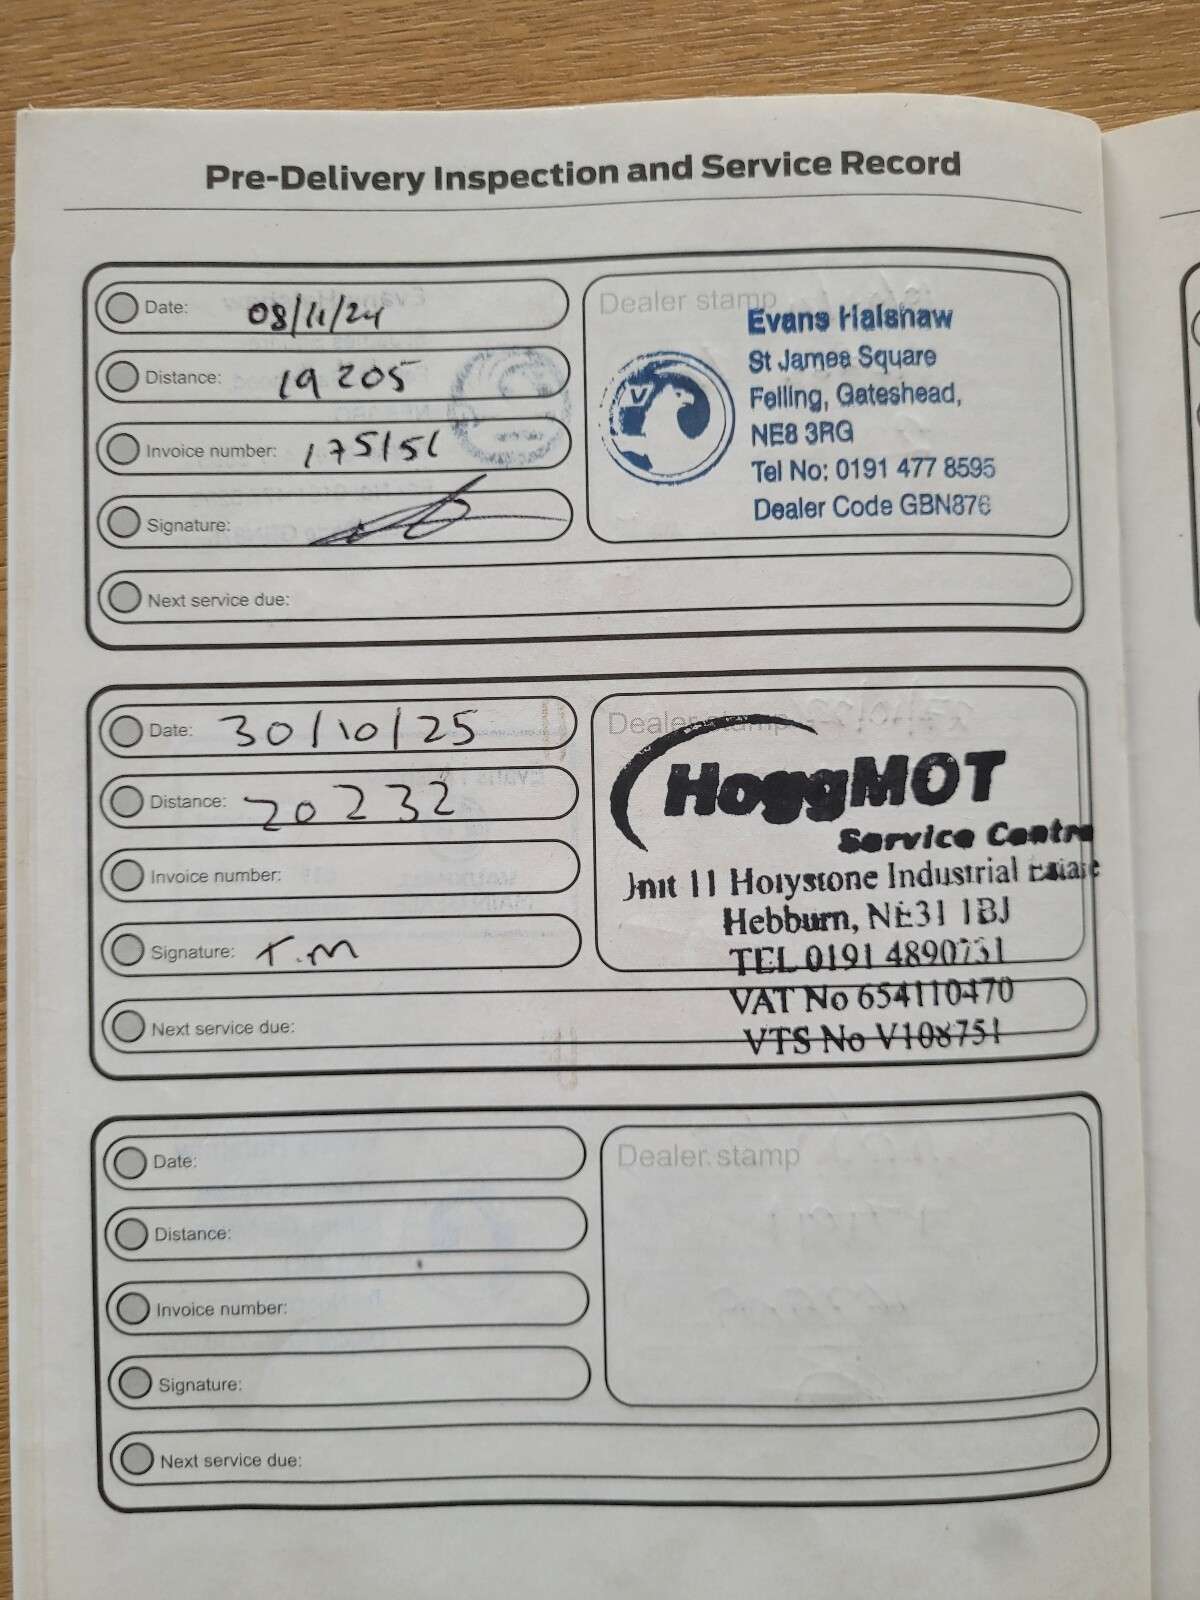 Pre-Delivery Inspection and Service Record
Date: 08/11/24
Distance: 19205
Invoice number: 175151
Signature:
Next service due:
Dealer stamp
Evans Halshaw
St James Square
Felling, Gateshead,
NE8 3RG
Tel No: 0191 477 8595
Dealer Code GBN876
V
Date: 30/10/25
Distance: 20232
Invoice number:
Signature: T.M
Next service due:
Dealer stamp
HoggMOT
Service Centre
Unit 11 Holystone Industrial Estate
Hebburn, NE31 1BJ
TEL 0191 4890731
VAT No 654110470
VTS No V108751
Date:
Distance:
Invoice number:
Signature:
Next service due:
Dealer stamp